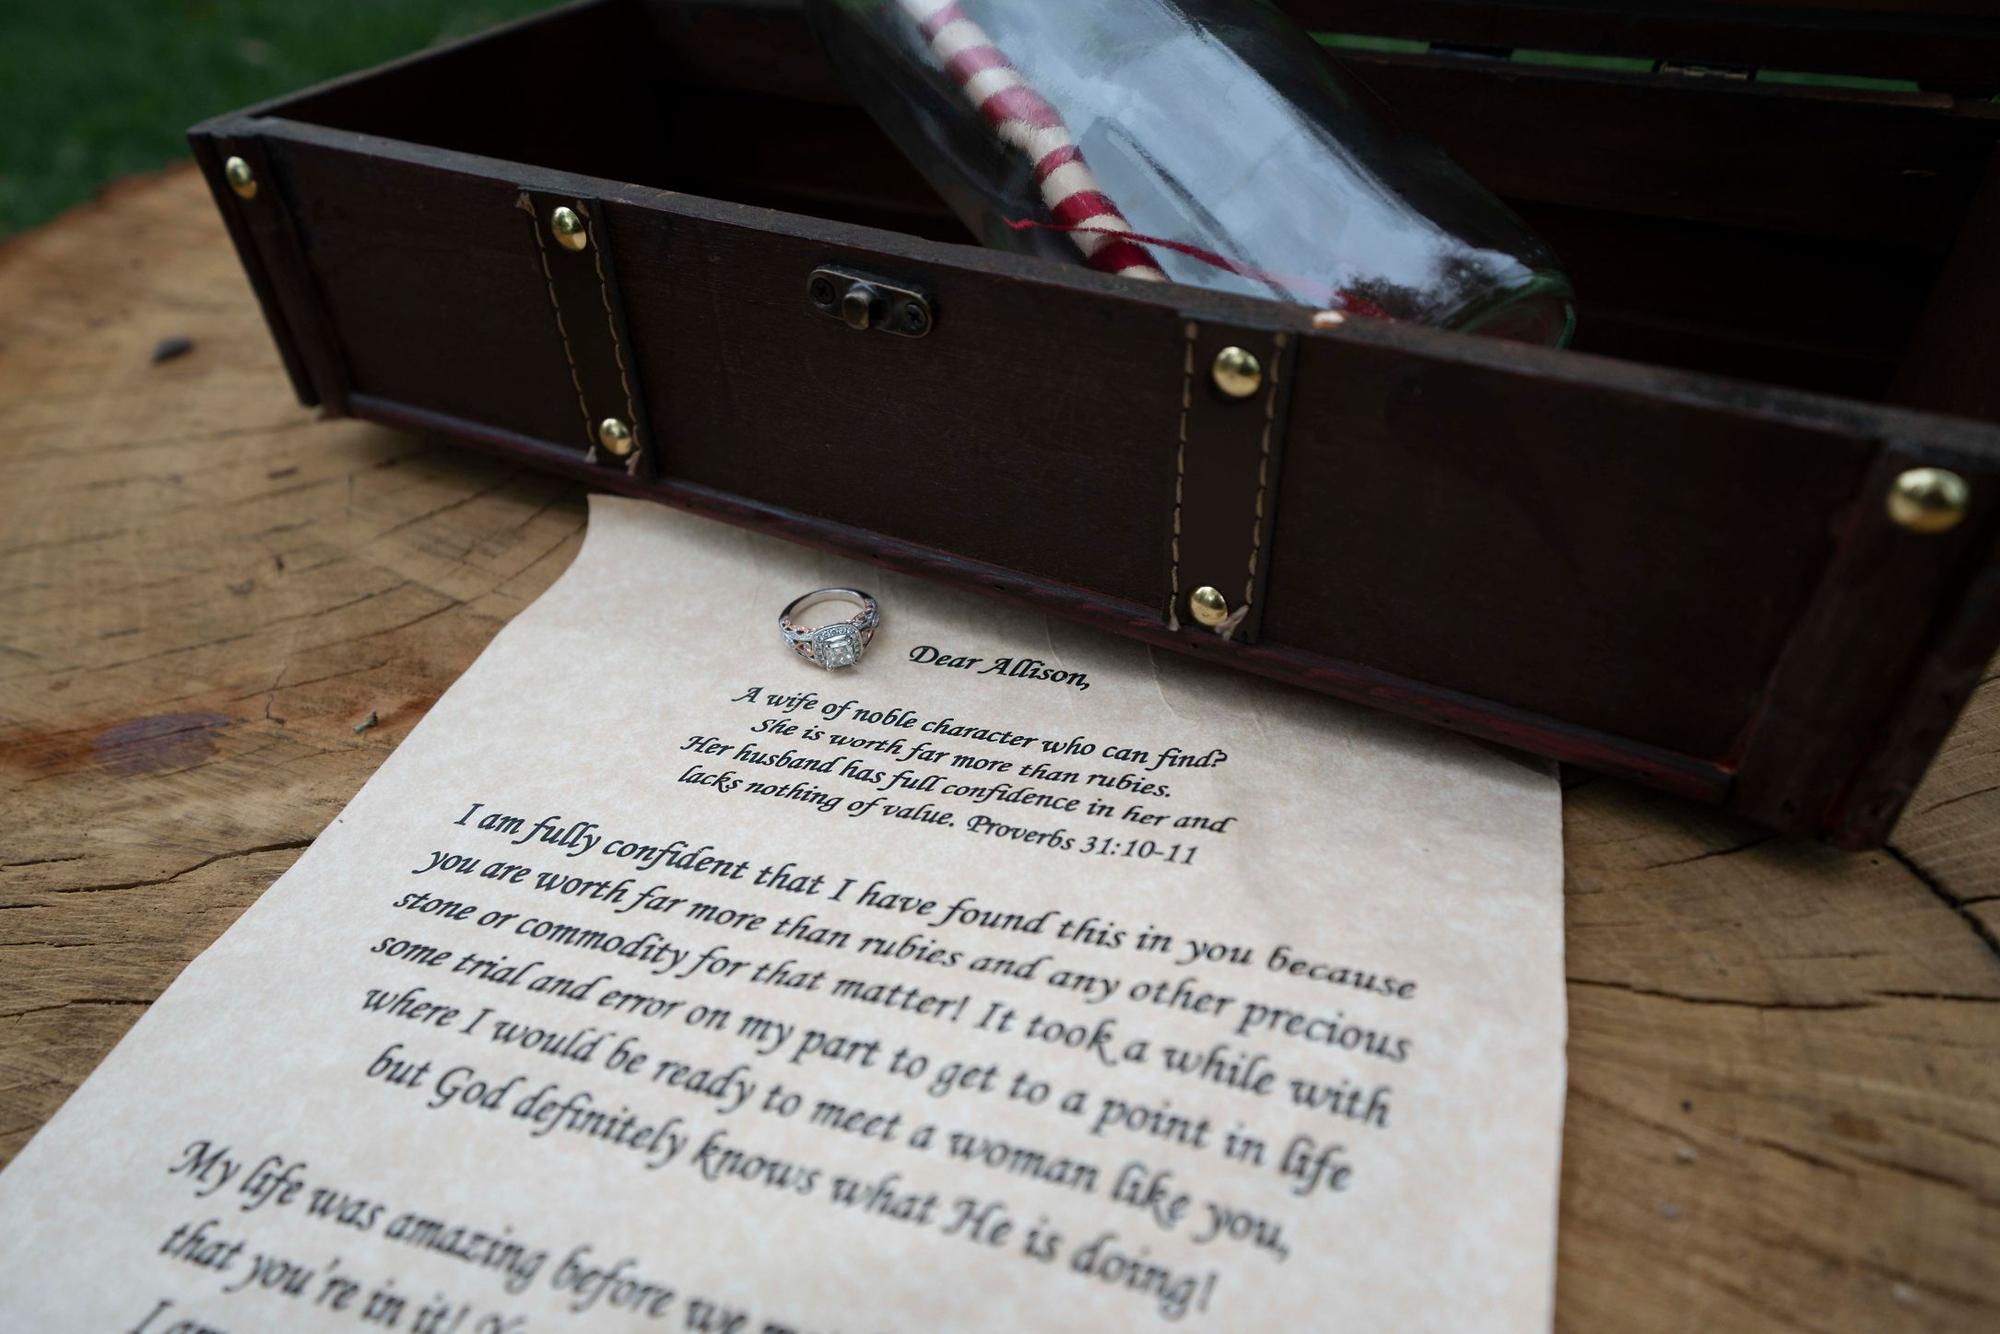 Dear Allison,
A wife of noble character who can find?
She is worth far more than rubies.
Her husband has full confidence in her and
lacks nothing of value. Proverbs 31:10-11
I am fully confident that I have found this in you because
you are worth far more than rubies and any other precious
stone or commodity for that matter! It took a while with
some trial and error on my part to get to a point in life
where I would be ready to meet a woman like you,
but God definitely knows what He is doing!
My life was amazing before we
that you're in it!
I am